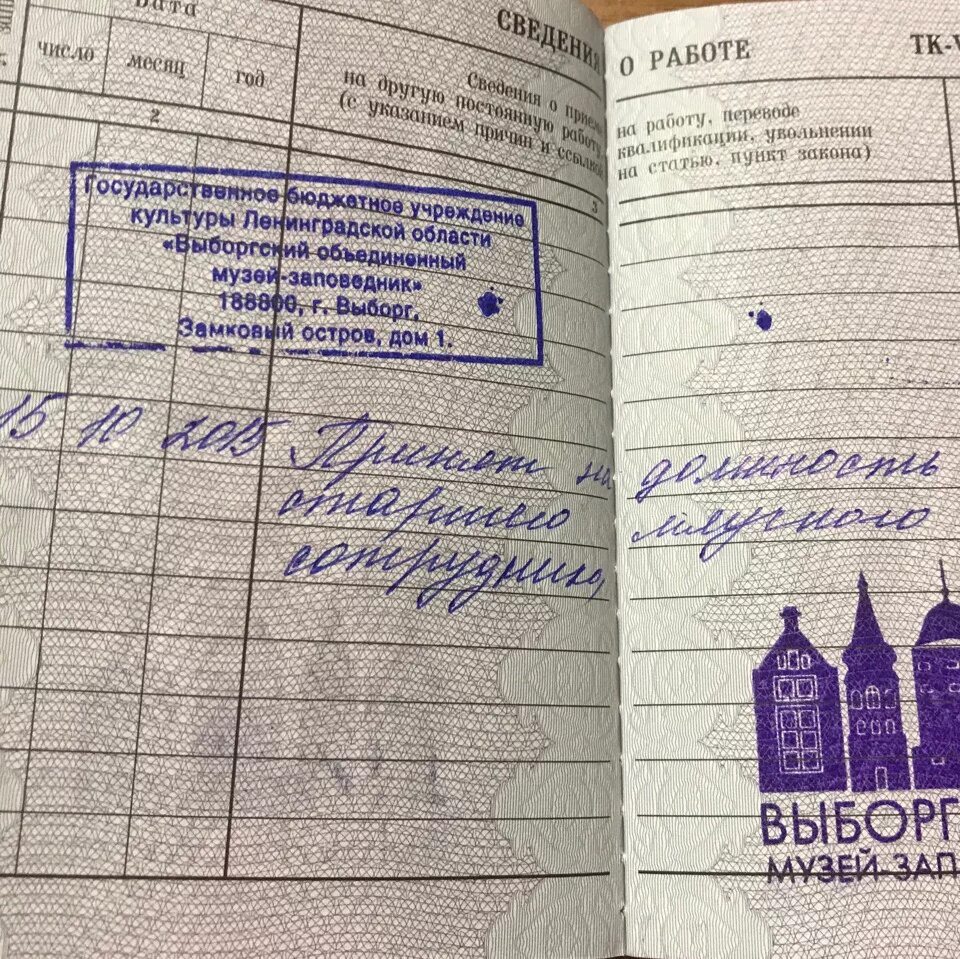 СВЕДЕНИЯ О РАБОТЕ ТК-V
Дата
число месяц год
Сведения о приеме на работу, переводе
на другую постоянную работу, квалификации, увольнении
(с указанием причин и ссылкой на статью, пункт закона)
2 3
Государственное бюджетное учреждение
культуры Ленинградской области
«Выборгский объединенный
музей-заповедник»
188800, г. Выборг,
Замковый остров, дом 1.
15 10 2015 Принят на должность
старшего научного
сотрудника
ВЫБОРГ
МУЗЕЙ-ЗАП